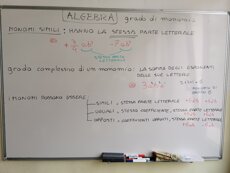 ALGEBRA grado di monomio
MONOMI SIMILI: HANNO LA STESSA PARTE LETTERALE
STESSA PARTE
LETTERALE
grado complessivo di un monomio: LA SOMMA DEGLI ESPONENTI
DELLE SUE LETTERE
I MONOMI POSSONO ESSERE
SIMILI, STESSA PARTE LETTERALE
UGUALI, STESSO COEFFICIENTE, STESSA PARTE LETTERALE
OPPOSTI, COEFFICIENTI OPPOSTI, STESSA PARTE LETTERALE